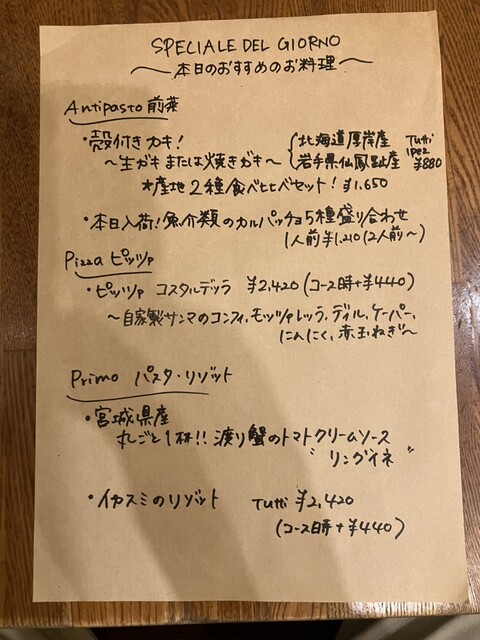 SPECIALE DEL GIORNO
〜本日のおすすめのお料理〜
Antipasto 前菜
・殻付きカキ!
〜生ガキまたは焼きガキ〜
北海道厚岸産
岩手県仙鳳趾産
Tutti
1pez
¥880
*産地2種食べ比べセット! ¥1,650
・本日入荷!魚介類のカルパッチョ5種盛り合わせ
1人前¥1,210(2人前〜)
Pizza ピッツァ
・ピッツァ コスタルデッラ ¥2,420(コース時+¥440)
〜自家製サンマのコンフィ、モッツァレッラ、ディル、ケーパー、
にんにく、赤玉ねぎ〜
Primo パスタ・リゾット
・宮城県産
丸ごと1杯!! 渡り蟹のトマトクリームソース
"リングイネ"
・イカスミのリゾット Tutti ¥2,420
(コース時+¥440)